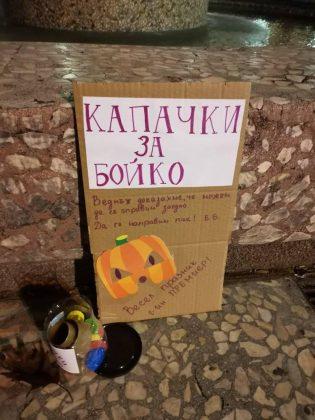 КАПАЧКИ
ЗА
БОЙКО
Веднъж доказахме, че можем
да се справим заедно.
Да го направим пак! Б.Б.
Весел празник
г-ин ПРЕМИЕР!